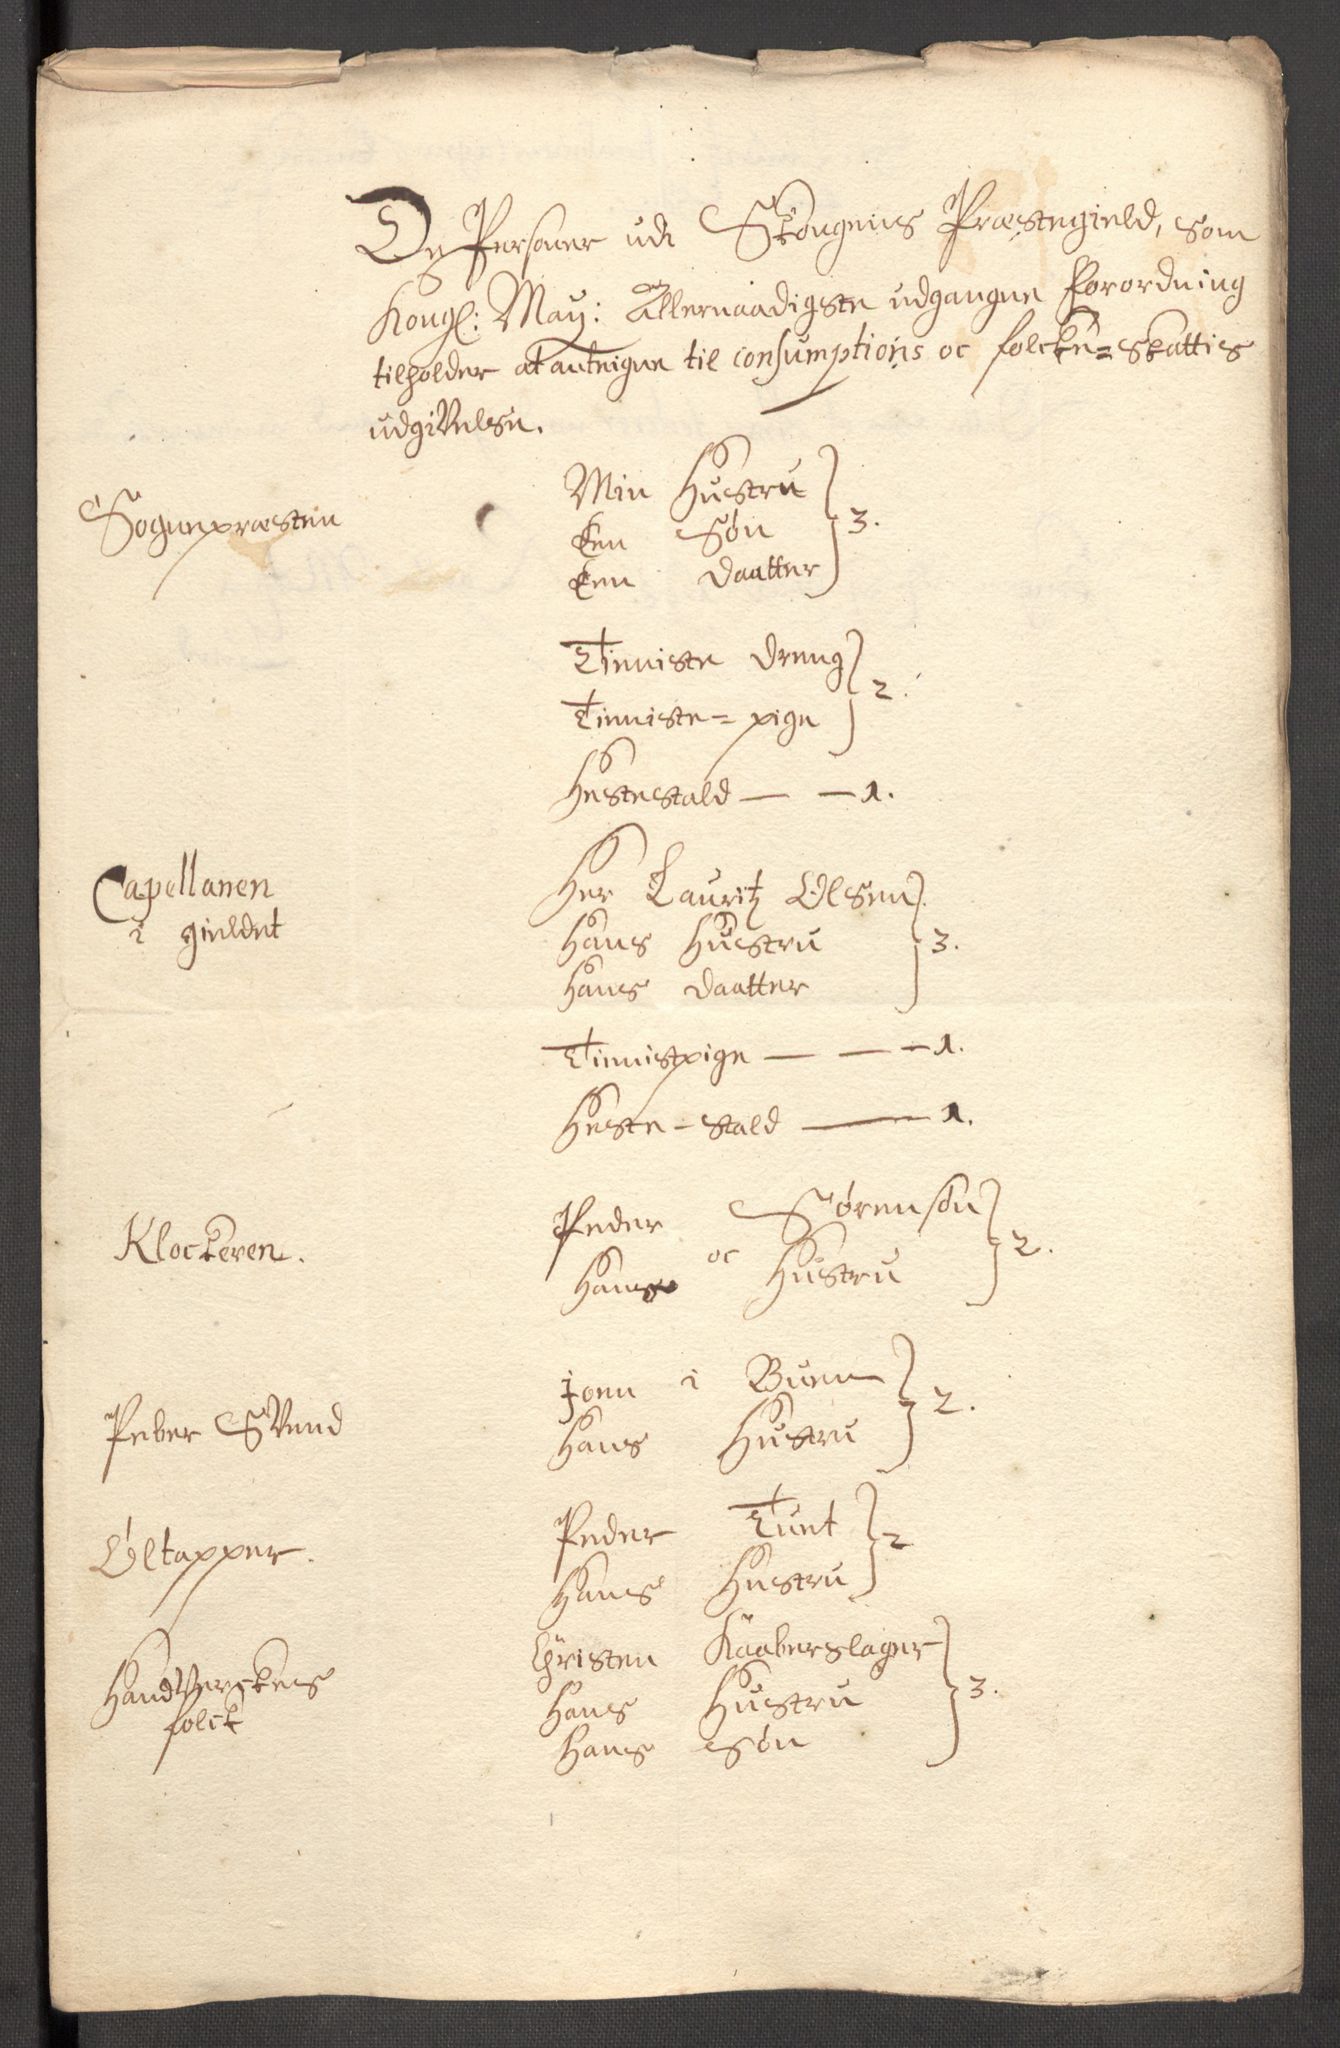 De Personer udi Skougnis Præstegield, som
Kongl: May: Allernaadigste udgangne Forordning
tilholder at anteigne til consumptions oc folcke=skattis
udgivelse.
Sognepræsten
Min Hustru
Een Søn
Een Daatter
3.
Tieniste Dreng
Tieniste=pige
2.
Hestestald — — 1.
Capellanen
i gieldet
Her Lauritz Olsen
Hans Hustru
Hans Daatter
3.
Tienistpige — — — 1.
Heste-stald — 1.
Klockeren.
Peder Sørensøn
oc
Hans Hustru
2.
Peber Svend
Joen i Buen
Hans Hustru
2.
Øltapper.
Peder Tuet
Hans Hustru
2
Handverckes
folck
Christen Kaaberslager
Hans Hustru
Hans Søn
3.